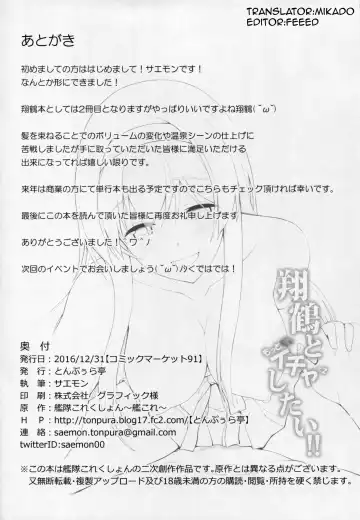 TRANSLATOR:MIKADO
EDITOR:FEEED
あとがき
初めましての方ははじめまして!サエモンです!
なんとか形にできました!
翔鶴本としては2冊目となりますがやっぱりいいですよね翔鶴(˘ω˘)
髪を束ねることでのボリュームの変化や温泉シーンの仕上げに
苦戦しましたが手に取っていただいた皆様に満足いただける
出来になってれば嬉しい限りです。
来年は商業の方にて単行本も出る予定ですのでこちらもチェック頂ければ幸いです。
最後にこの本を読んで頂いた皆様に再度お礼申し上げます
ありがとうございました!
次回のイベントでお会いしましょう(˘ω˘)ノシではでは!
翔鶴と
イチャ
したい!!
奥 付
発行日:2016/12/31【コミックマーケット91】
発 行:とんぷぅら亭
執 筆:サエモン
印 刷:株式会社 グラフィック様
原 作:艦隊これくしょん~艦これ~
H P:http://tonpura.blog17.fc2.com/【とんぷぅら亭】
連 絡:saemon.tonpura@gmail.com
twitterID:saemon00
※この本は艦隊これくしょんの二次創作作品です。原作とは異なる点がございます。
又無断転載・複製アップロード及び18歳未満の方の購読・閲覧・所持を硬く禁じます。